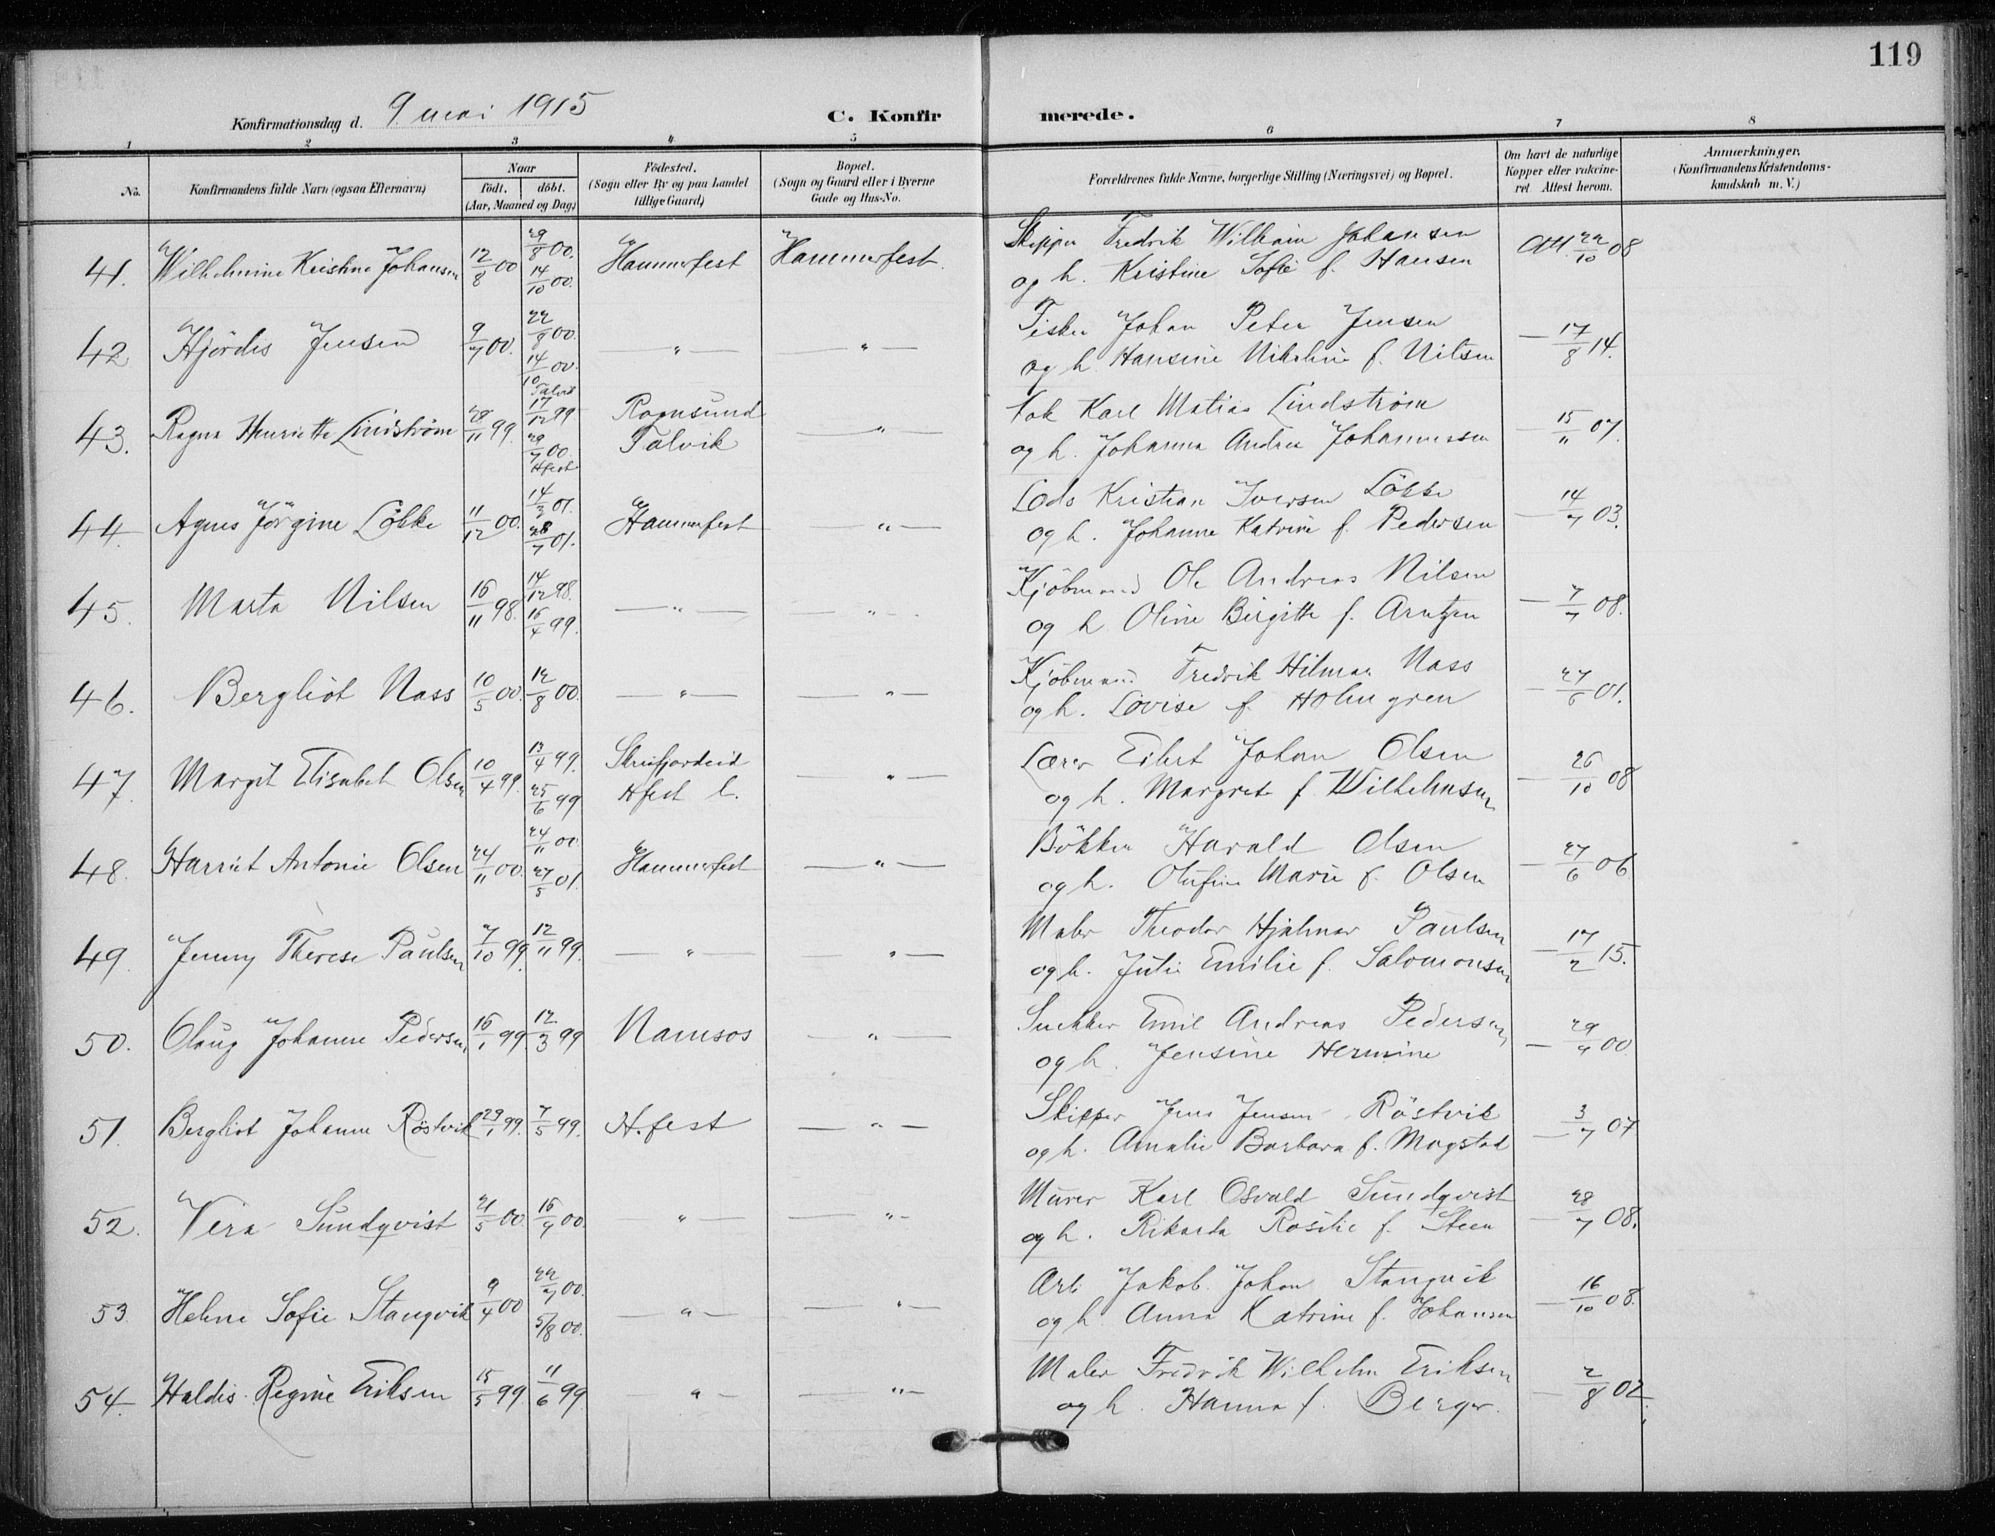 119
Konfirmationsdag d. 9 mai 1915
C. Konfirmerede.
1 2 3 4 5 6 7 8
No.
Konfirmandens fulde Navn (ogsaa Efternavn)
Naar
født. døbt.
(Aar, Maaned og Dag)
Fødested.
(Sogn eller By og paa Landet
tillige Gaard)
Bopæl.
(Sogn og Gaard eller i Byerne
Gade og Hus-No.
Forældrenes fulde Navne, borgerlige Stilling (Næringsvei) og Bopæl.
Om havt de naturlige
Kopper eller vakcine-
ret Attest herom.
Anmærkninger.
(Konfirmandens Kristendoms-
kundskab m. V.)
41. Wilhelmine Kristine Johansen 12/8 00 29/8 00. 14/10 00. Hammerfest Hammerfest.
Skipper Fredrik Wilhelm Johansen
og h. Kristine Sofie f. Hansen Att. 22/10 08
42 Hjördis Jensen 9/7 00. 22/8 00. 14/10 00. —"— —"—
Fisker Johan Peter Jensen
og h. Hansine Nikoline f. Nilsen — 17/8 14.
43. Ragna Henriette Lindström 28/11 99. Talvik 17/12 99 29/7 00. Hfest Rognsund Talvik —"—
Kok Karl Matias Lindstrøm
og h. Johanna Andrea Johannessen — 15/11 07.
44. Agnes Jörgine Lökke 11/12 00. 14/3 01. 28/7 01. Hammerfest "—
Lods Kristian Iversen Lökke
og h. Johanne Katrine f. Pedersen — 14/7 03.
45. Marta Nilsen 16/11 98. 14/12 98. 16/4 99. —"— —"—
Kjöbmand Ole Andreas Nilsen
og h. Oline Birgitte f. Arntzen — 7/7 08.
46. Bergliot Nass 10/5 00. 12/8 00. —"— —"—
Kjöbmand Fredrik Hilmar Nass
og h. Lovise f. Holmgren — 27/6 01.
47. Margit Elisabet Olsen 10/4 99. 13/4 99. 25/6 99 Hfest l. —"—
Lærer Eilert Johan Olsen
og h. Margrete f. Wilhelmsen — 26/10 08
48. Harriet Antonie Olsen 24/11 00. 24/11 00 27/5 01. Hammerfest —"—
Bökker Harald Olsen
og h. Olufine Marie f. Olsen — 27/6 06
49. Jenny Therese Paulsen 7/10 99. 12/11 99. —"— —"—
Maler Theodor Hjalmar Paulsen
og h. Julie Emilie f. Salomonsen — 17/2 15.
50. Olaug Johanne Pedersen 16/1 99. 12/3 99 Namsos —"—
Snekker Emil Andreas Pedersen
og h. Jensine Hermine — 29/9 00
51. Bergliot Johanne Röstvik 29/1 99. 7/5 99. H.fest —"—
Skipper Jens Jensen Röstvik
og h. Amalie Barbara f. Mogstad — 3/7 07
52. Vera Sundqvist 21/5 00. 16/9 00. —"— —"—
Murer Karl Osvald Sundqvist
og h. Rikarda Rosilie f. Steen — 28/7 08.
53. Helene Sofie Stangvik 9/4 00 22/7 00. 5/8 00. —"— —"—
Arb. Jakob Johan Stangvik
og h. Anna Katrine f. Johansen — 16/10 08.
54. Haldis Regine Eriksen 15/5 99. 11/6 99 "— —"—
Maler Fredrik Wilhelm Eriksen
og h. Hanna f. Berger. — 2/8 02.